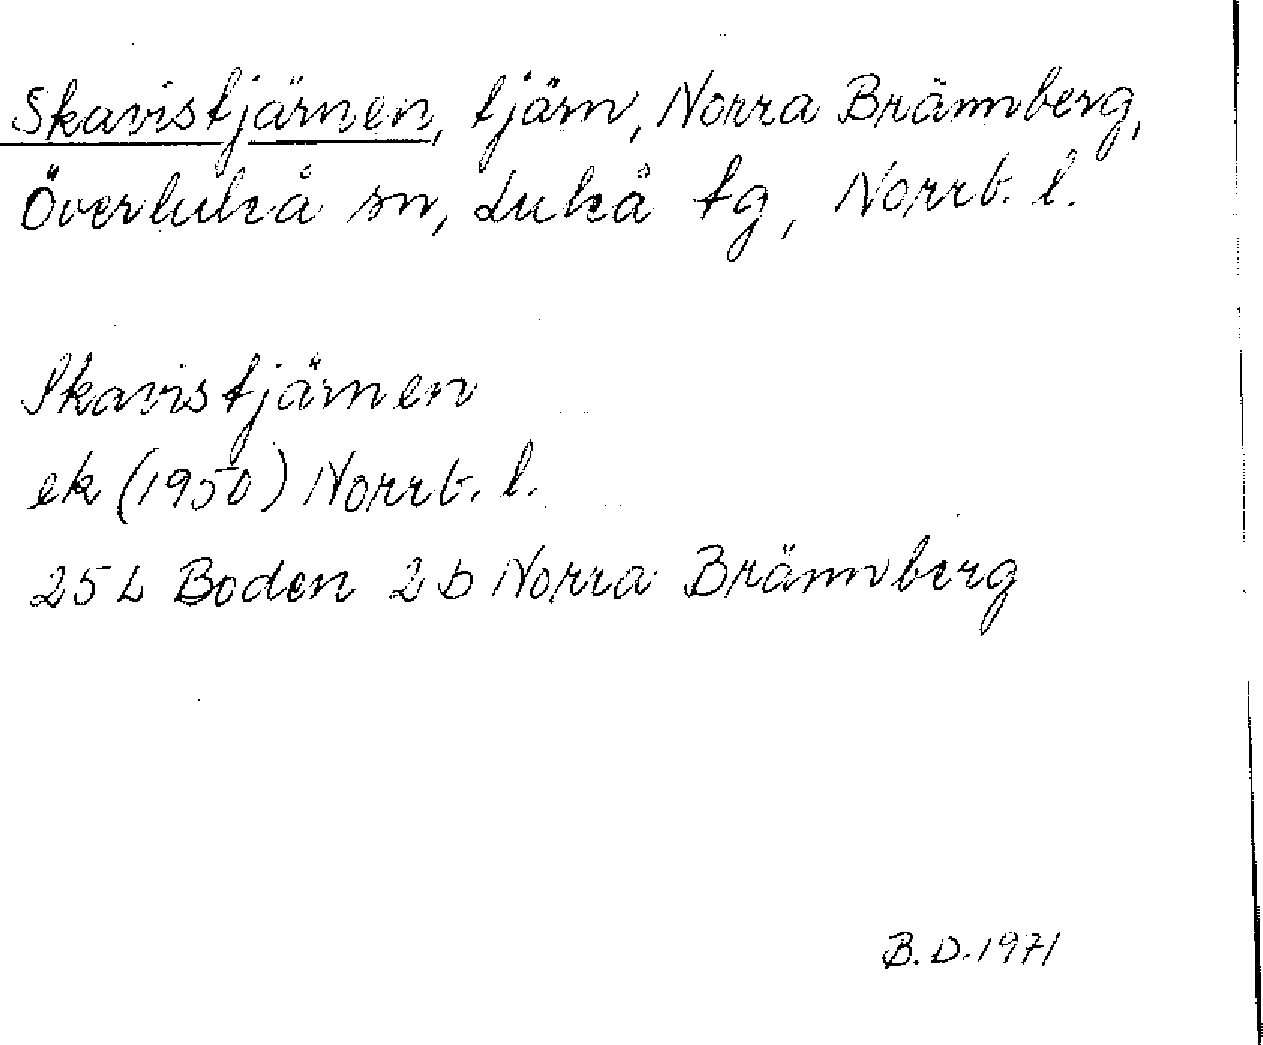 Skavistjärnen, tjärn, Norra Brännberg,
Överluleå sn, Luleå tg, Norrb. l.
Skavistjärnen
ek (1950) Norrb. l.
25 L Boden 2 b Norra Brännberg
B. D. 1971